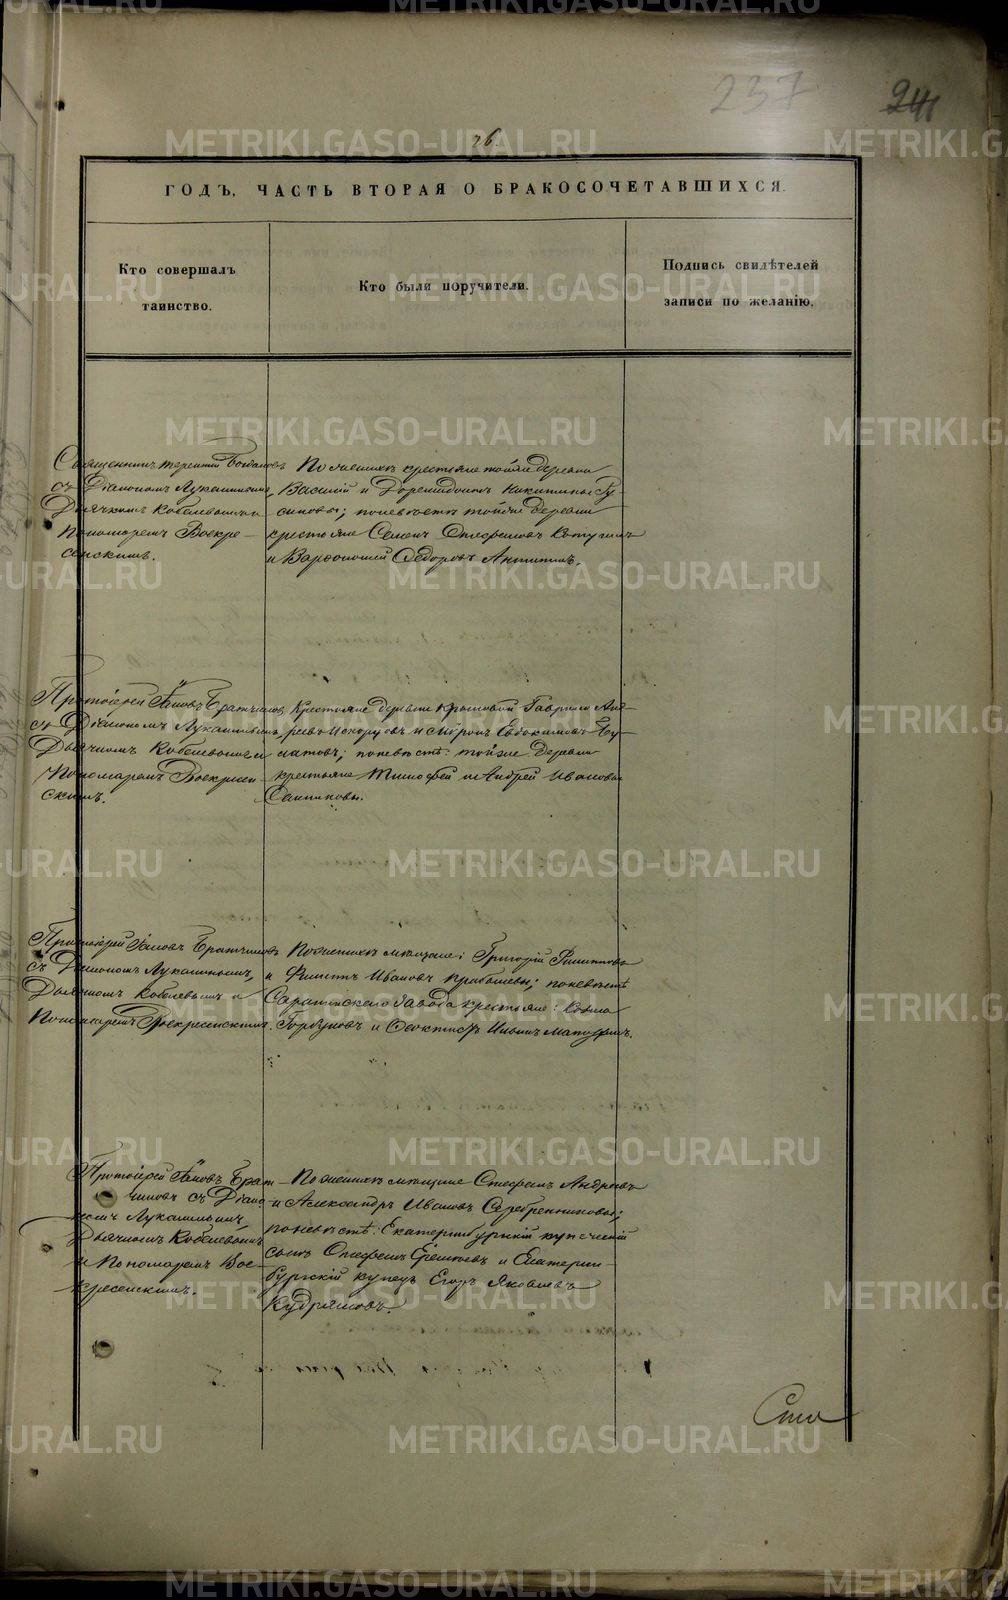 237
241
26.
ГОДЪ, ЧАСТЬ ВТОРАЯ О БРАКОСОЧЕТАВШИХСЯ.
Кто совершалъ
таинство.
Кто были поручители.
Подпись свидѣтелей
записи по желанію.
Священникъ Терентій Богдановъ
съ Діакономъ Лукашинымъ,
Дьячкомъ Кобелевымъ и
Пономаремъ Воскре-
сенскимъ.
По женихѣ крестьяне тойже деревни
Василій и Доремидонтъ Никитины Гу-
синовы; по невѣстѣ тойже деревни
крестьяне Семенъ Стефановъ
и Варѳоломей Ѳедоровъ
Протоіерей Іаковъ Братчиковъ
съ Діакономъ Лукашинымъ,
Дьячкомъ Кобелевымъ и
Пономаремъ Воскресен-
скимъ.
Крестьяне деревни Крыловой Гаврило Анд-
реевъ и Миронъ Евдокимовъ
по невѣстѣ тойже деревни
крестьяне Тимофей и Андрей Ивановы
Санниковы.
Протоіерей Іаковъ Братчиковъ
съ Діакономъ Лукашинымъ,
Дьячкомъ Кобелевымъ и
Пономаремъ Воскресенскимъ.
По женихѣ мѣщане: Григорій Филиповъ
и Филипъ Ивановъ по невѣстѣ
Саранинскаго завода крестьяне: Козма
Горбуновъ и Ѳеоктистъ Ильинъ
Протоіерей Іаковъ Брат-
чиковъ съ Діако-
номъ Лукашинымъ,
Дьячкомъ Кобелевымъ
и Пономаремъ Вос-
кресенскимъ.
По женихѣ мѣщане Стефанъ Андреевъ
и Александръ Ивановъ Серебренниковы;
по невѣстѣ: Екатеринбургскій купеческій
сынъ Стефанъ и Екатерин-
бургскій купецъ Егоръ Яковлевъ
Кудряшовъ.
METRIKI.GASO-URAL.RU